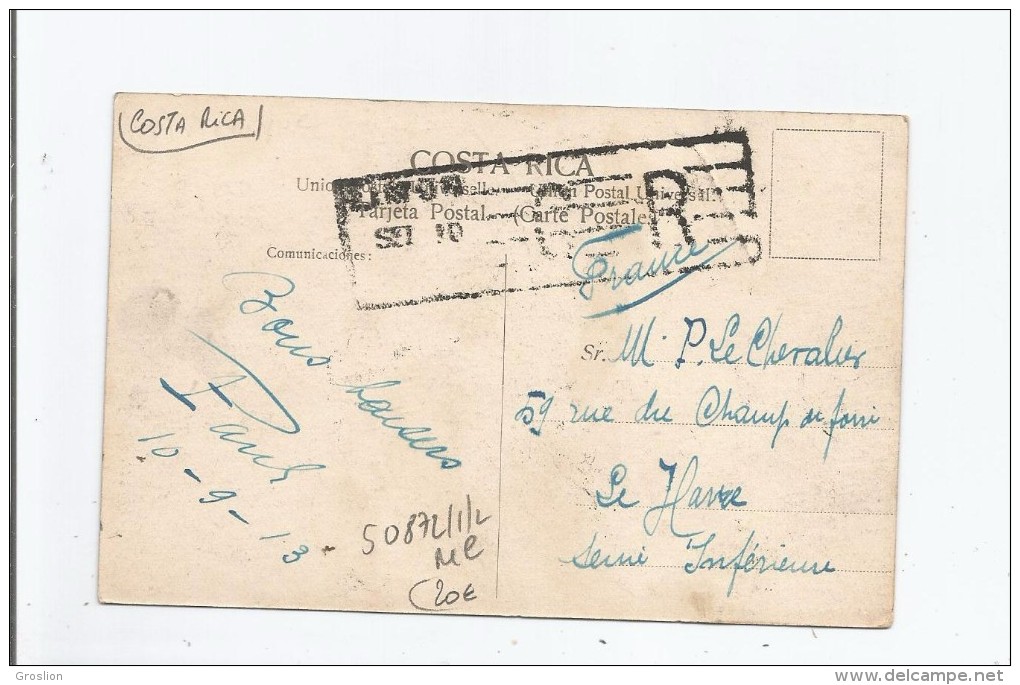 COSTA RICA
COSTA RICA
Union Postal Universal.
Tarjeta Postal.—(Carte Postale)
LIMON
SET 10
Comunicaciones:
France
Bons baisers
Paul
10-9-13
Sr. M. P. Le Chevalier
59 rue du Champ de foire
Le Havre
Seine Inférieure
50872/1/2
MC
20€
Groslion
delcampe.net